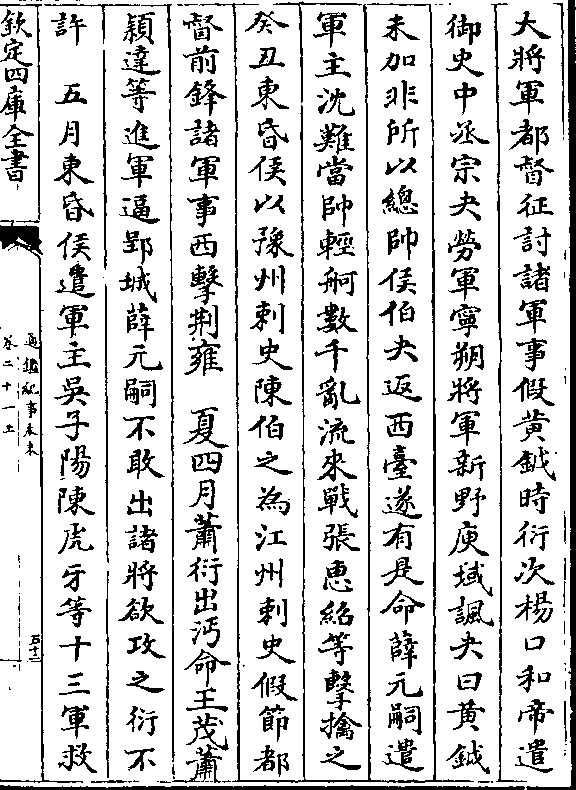 大將軍都督征討諸軍事假黄鉞時衍次楊口和帝遣
御史中丞宗夬勞軍寧朔將軍新野庾域諷夬曰黄鉞
未加非所以總帥侯伯夬返西臺遂有是命薛元嗣遣
軍主沈難當帥輕舸數千亂流來戰張惠紹等擊擒之
癸丑東昏侯以豫州刺史陳伯之為江州刺史假節都
督前鋒諸軍事西擊荆雍　夏四月蕭衍出沔命王茂蕭
頴達等進軍逼郢城薛元嗣不敢出諸將欲攻之衍不
許　五月東昏侯遣軍主吳子陽陳虎牙等十三軍救
欽定四庫全書
通鑑紀事本末
卷二十一上
五十二